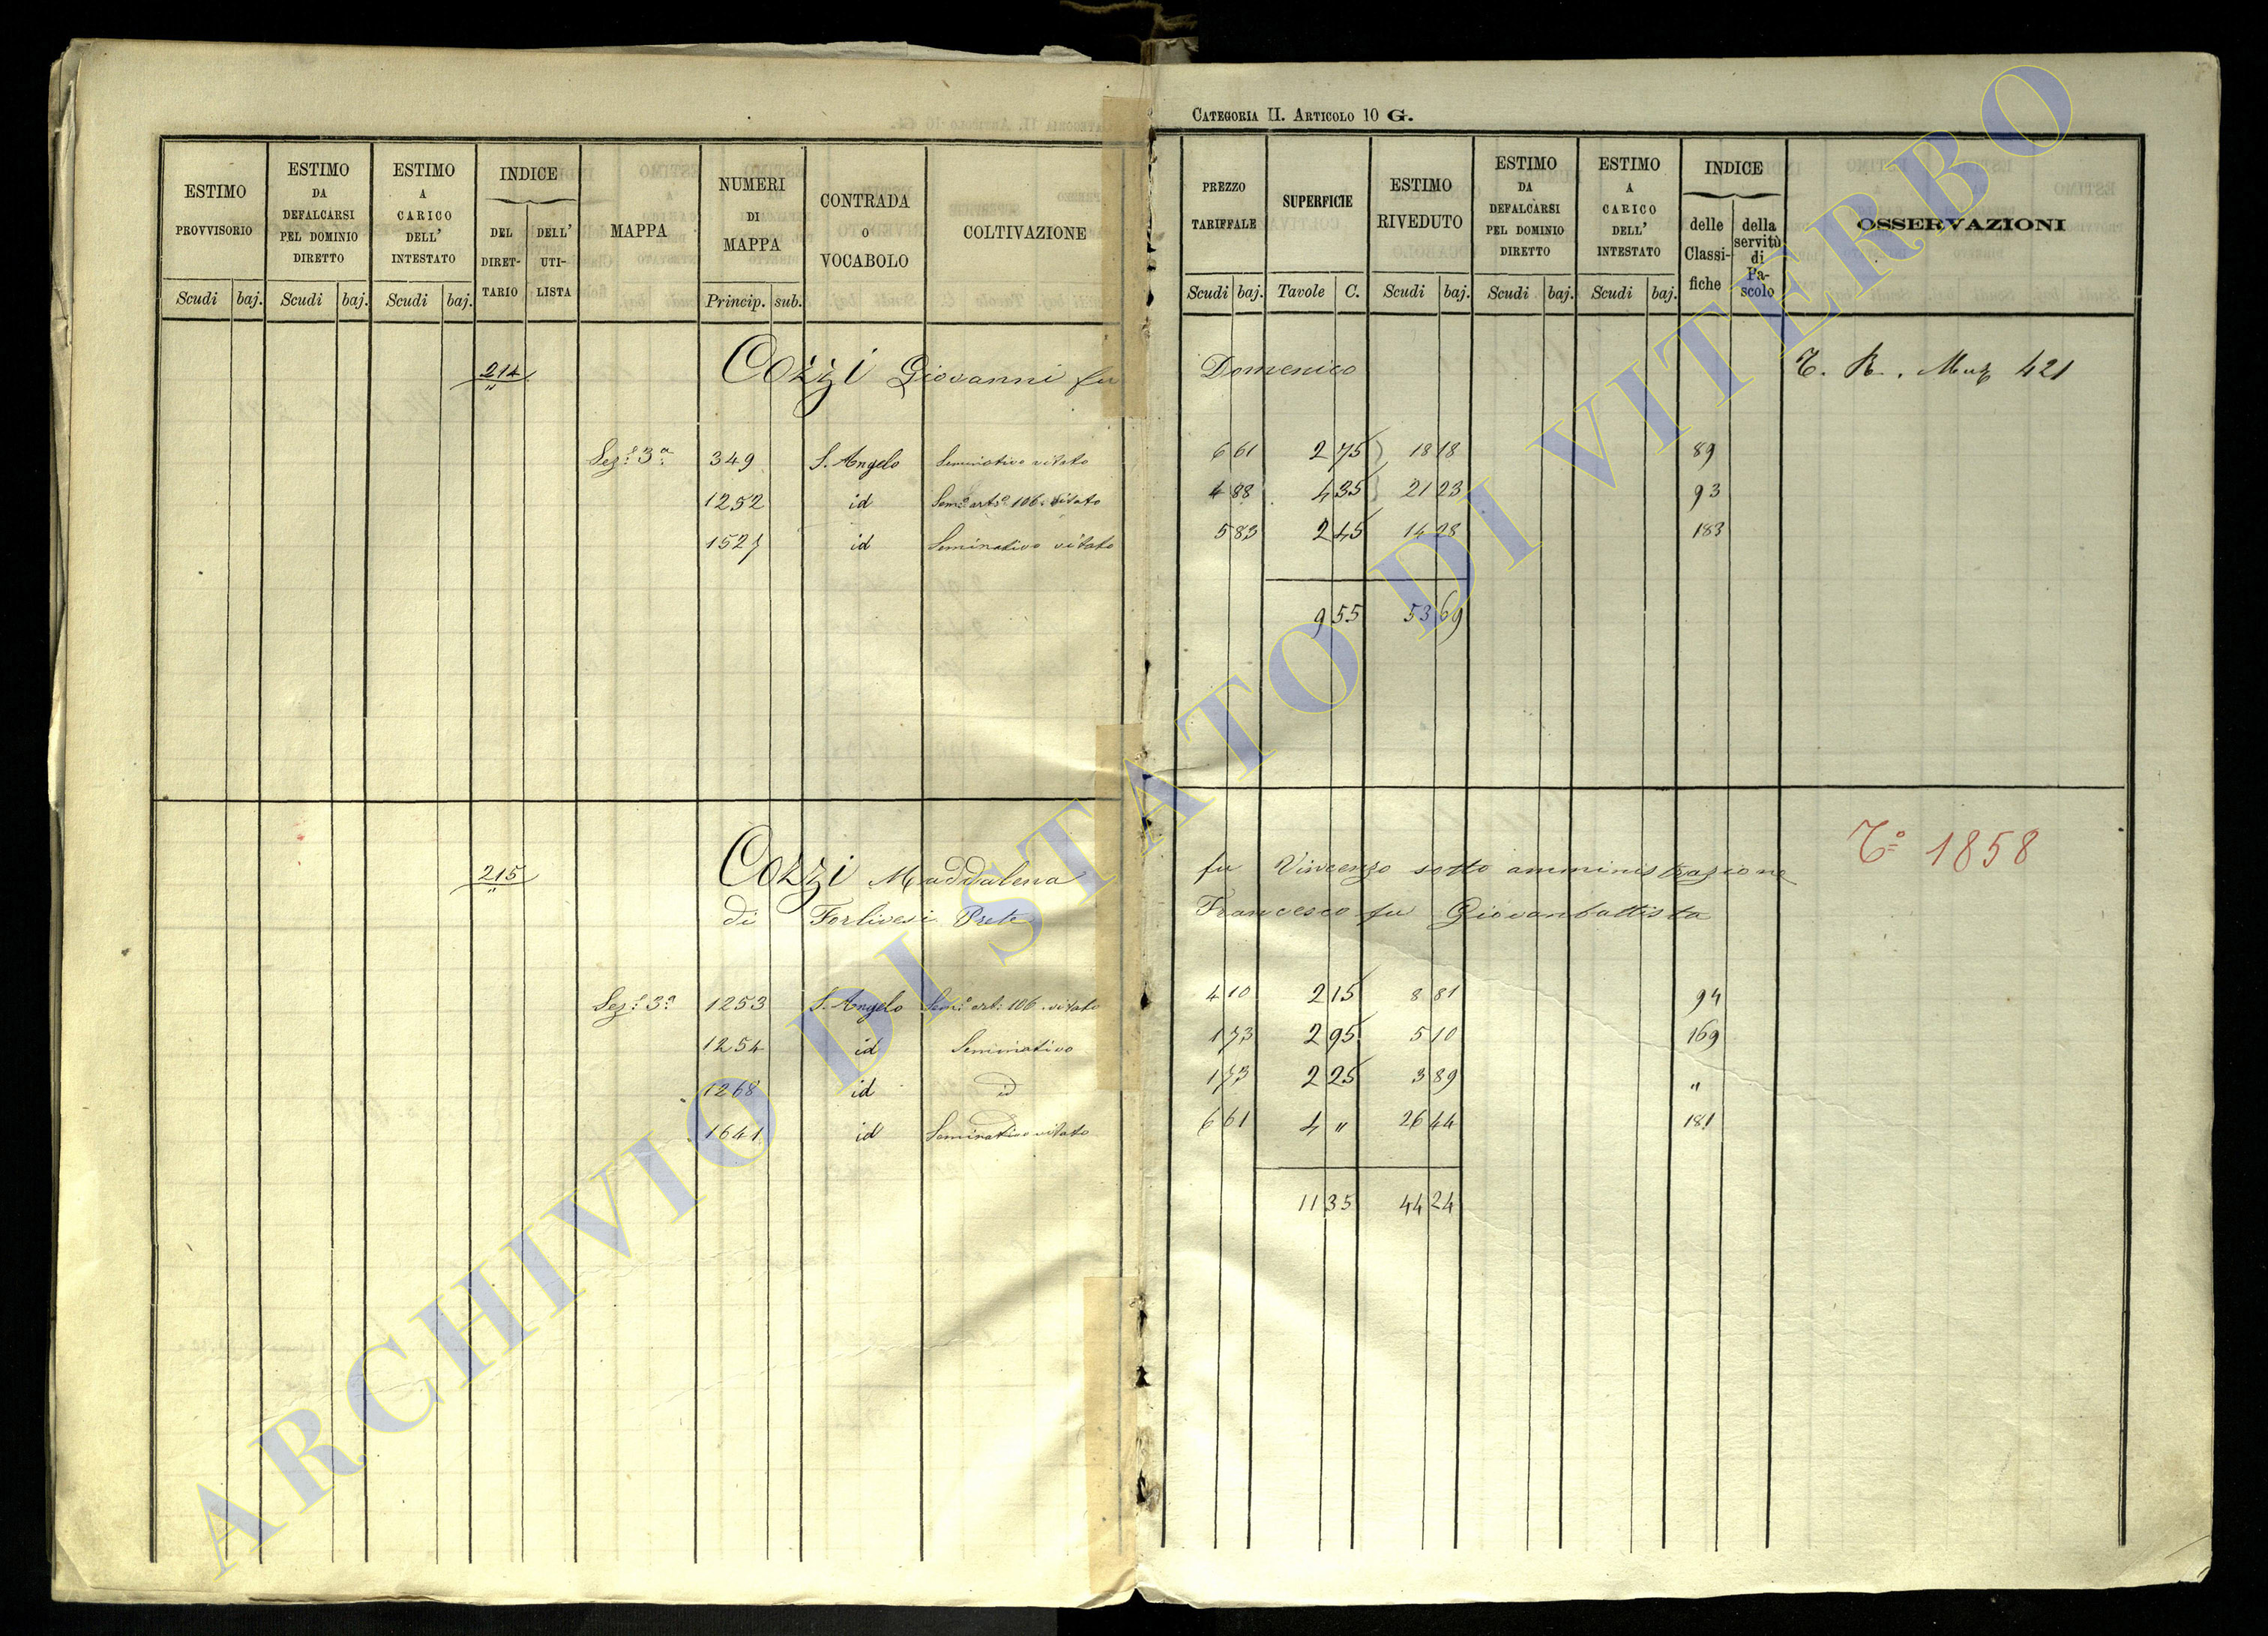 CATEGORIA II. ARTICOLO 10 G.
ESTIMO PROVVISORIO Scudi baj.
ESTIMO DA DEFALCARSI PEL DOMINIO DIRETTO Scudi baj.
ESTIMO A CARICO DELL' INTESTATO Scudi baj.
INDICE DEL DIRET-TARIO DELL' UTI-LISTA
MAPPA
NUMERI DI MAPPA Princip. sub.
CONTRADA O VOCABOLO
COLTIVAZIONE
PREZZO TARIFFALE Scudi baj.
SUPERFICIE Tavole C.
ESTIMO RIVEDUTO Scudi baj.
ESTIMO DA DEFALCARSI PEL DOMINIO DIRETTO Scudi baj.
ESTIMO A CARICO DELL' INTESTATO Scudi baj.
INDICE delle Classi-fiche della servitù di Pa-scolo
OSSERVAZIONI
214 Cozzi Giovanni fu Domenico 421
Sez.e 3a 349 S. Angelo Seminativo vitato 6 61 2 75 18 18 89
1252 id Sem.o art.o 106. vitato 4 88 4 35 21 23 93
1527 id Seminativo vitato 5 83 2 45 14 28 183
9 55 53 69
215 Cozzi Maddalena fu Vincenzo sotto amministrazione T.o 1858
di Forlivesi Prete Francesco fu Giovanbattista
Sez.e 3a 1253 S. Angelo Sem.o art. 106. vitato 4 10 2 15 8 81 94
1254 id Seminativo 1 73 2 95 5 10 169
1268 id id 1 73 2 25 3 89 "
1641 id Seminativo vitato 6 61 4 " 26 44 181
11 35 44 24
ARCHIVIO DI STATO DI VITERBO